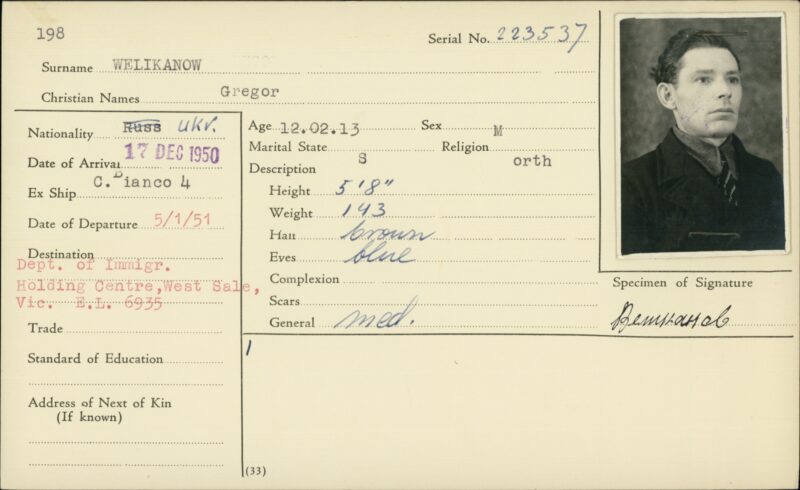 198
Serial No. 223537
Surname WELIKANOW
Christian Names Gregor
Nationality Russ UKr.
Date of Arrival 17 DEC 1950
Ex Ship C. Bianco 4
Date of Departure 5/1/51
Destination
Dept. of Immigr.
Holding Centre, West Sale,
Vic. E.L. 6935
Trade
Standard of Education
Address of Next of Kin
(If known)
Age 12.02.13 Sex M
Marital State S Religion orth
Description
Height 5'8"
Weight 143
Hair brown
Eyes blue
Complexion
Scars
General med.
1
(33)
Specimen of Signature
Великанов